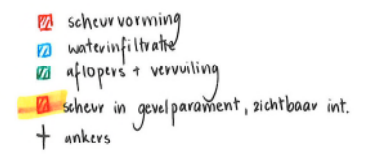 scheurvorming
waterinfiltratie
aflopers + vervuiling
scheur in gevelparament, zichtbaar int.
ankers